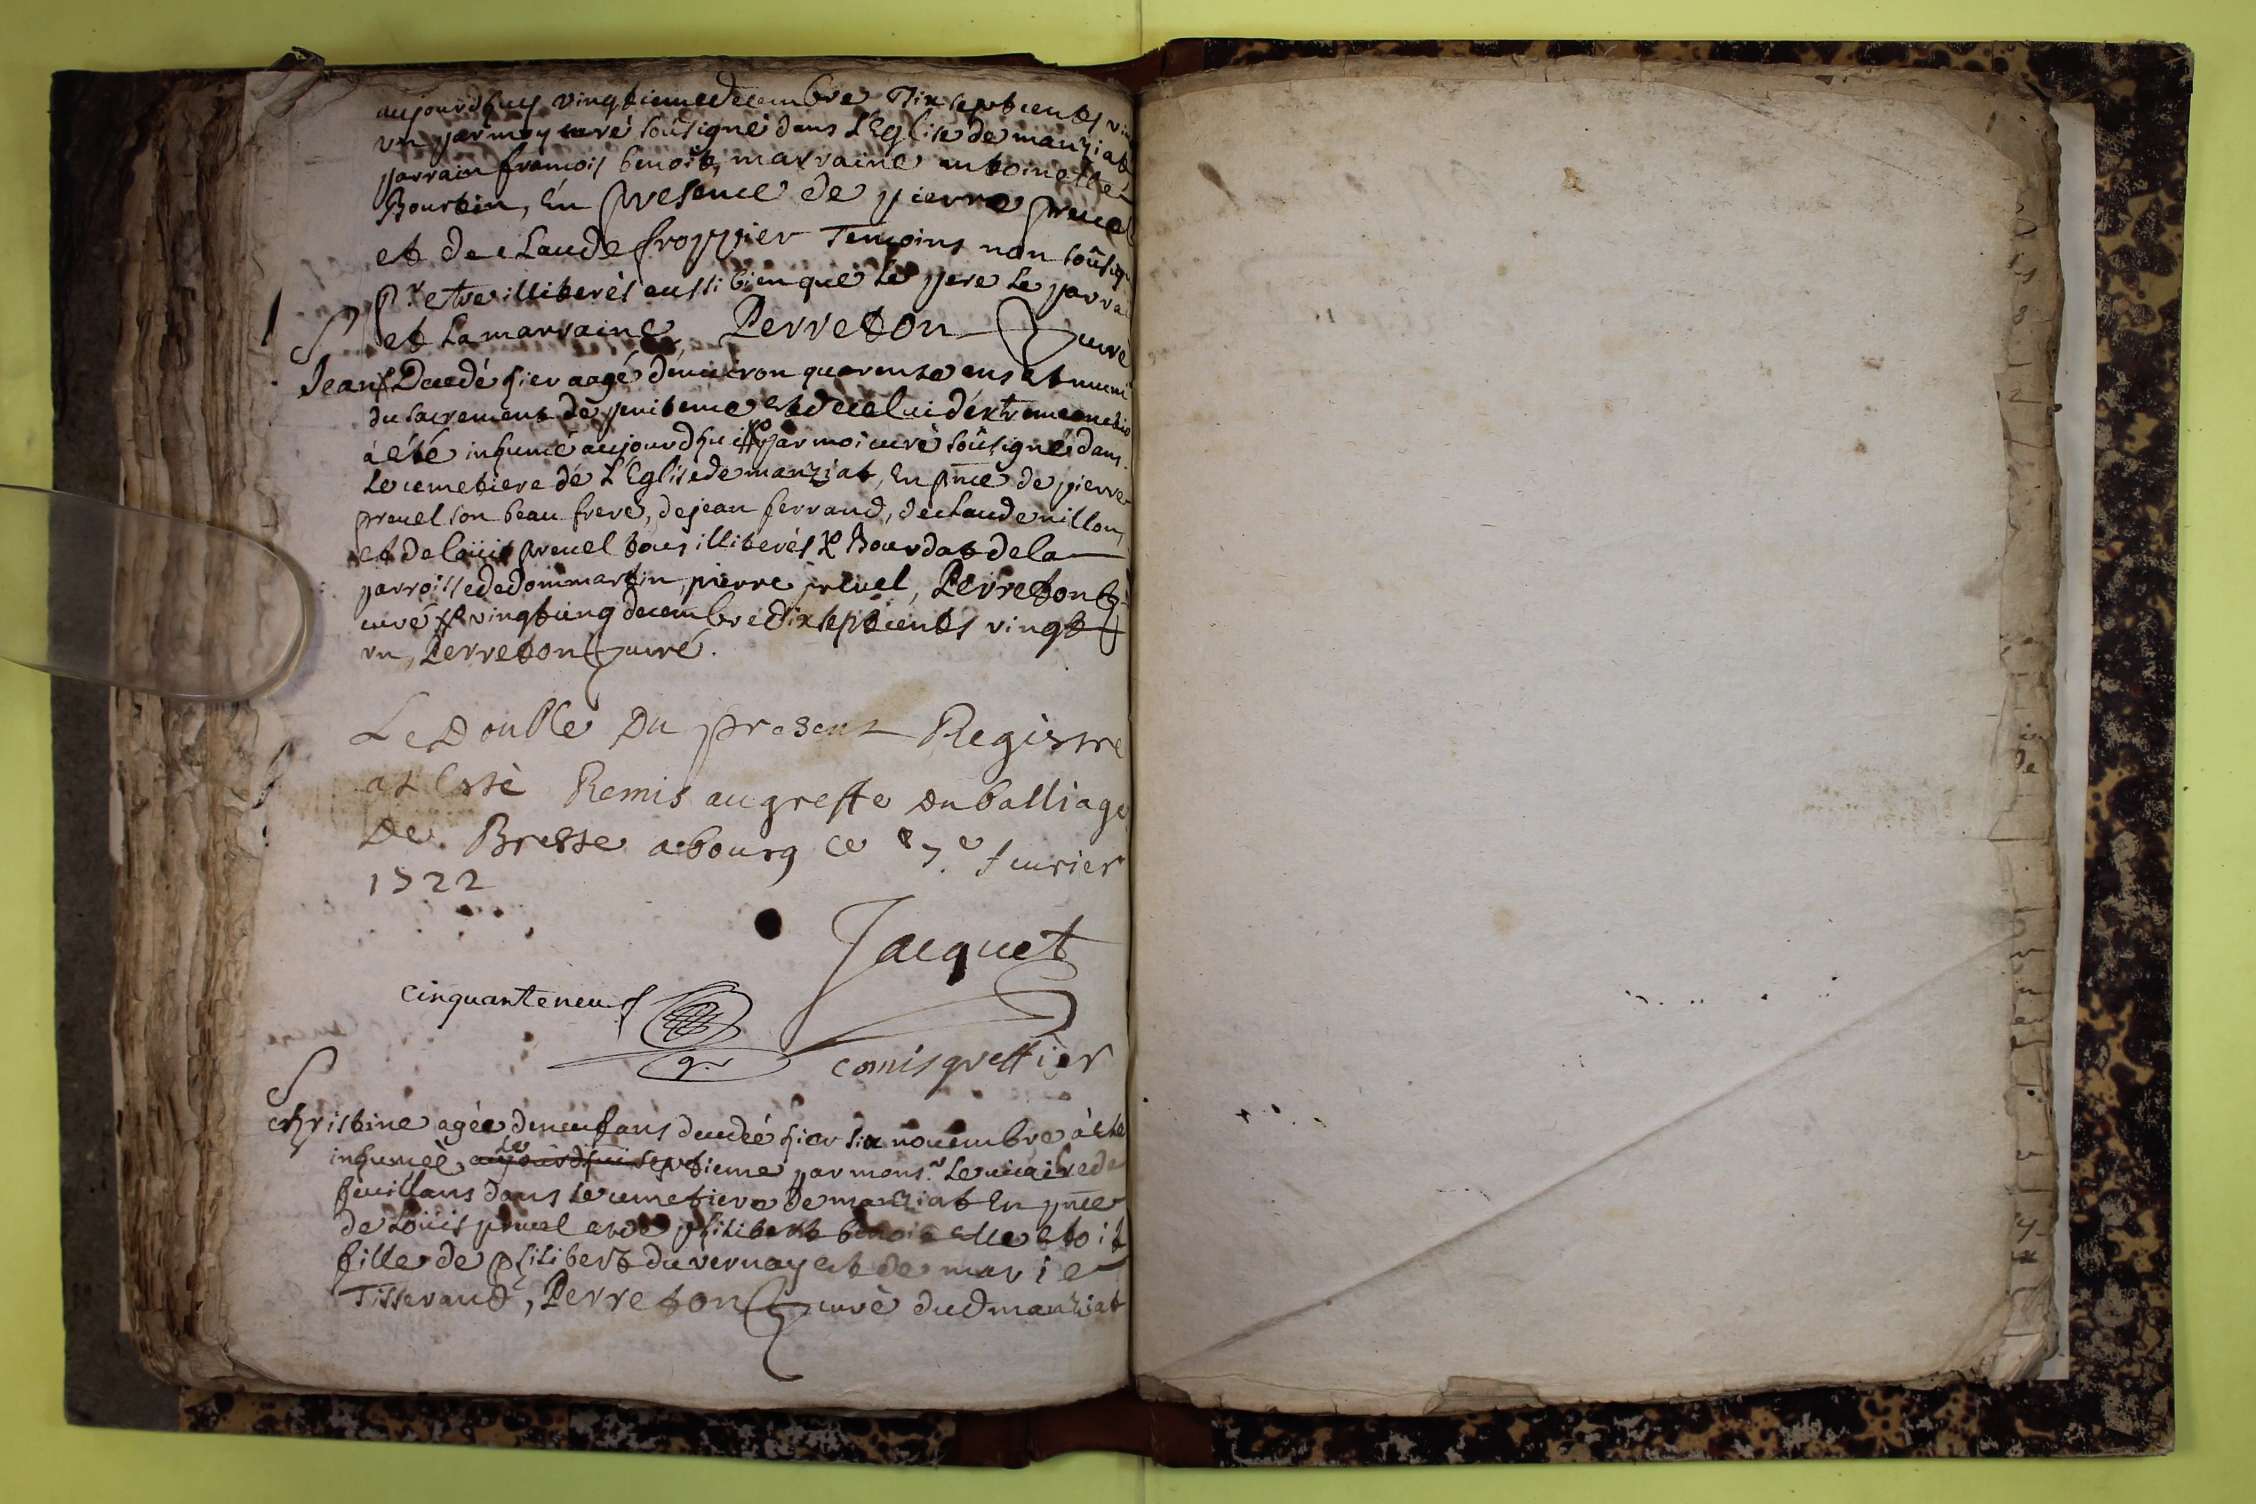 aujourdhuy vingtiemedecembre Dix septcents vin
un par moy curé soûsigné dans L'Eglise de manziat
parrain francois benoit, marraine antoinette
Bourtin, En presence de pierre preuel
et de claude froppier Temoins non soûsig
Pr etre illiterés aussi bien que le pere le parra
et Lamarraine, Perreton curé
S
Jean Decedé hier aagé d'environ quarente ans et muni
du sacrement de penitence et de celui d'extremeonctio
à été inhumé aujourdhui par moi curé soûsigné dans
Le cemetiere de L'Eglise de manziat, En pnce de pierre
preuel son beau frere, de jean ferrand, de claude nillon,
et de Loüis preuel tous illiterés Bourdat de la
parroisse de dommartin, pierre preuel, Perreton
curé vingtunq decembre dix septcents vingt
un, Perreton curé.
Le Double Du present Registre
at Esté Remis au greffe du balliage
De Bresse abourg ce 7e feurier
1722
Jacquet
cinquanteneuf
comis greffier
S
christine agée de neuf ans decedée hier six nouembre à été
inhumée, aujourdhui le septieme par monsr. le vicaire de
feuillans dans le cemetiere de manziat En pnce
de Loüis preuel et de philibert benoit elle etoit
fille de philibert duvernay et de marie
Tisserand, Perreton curé dud manziat